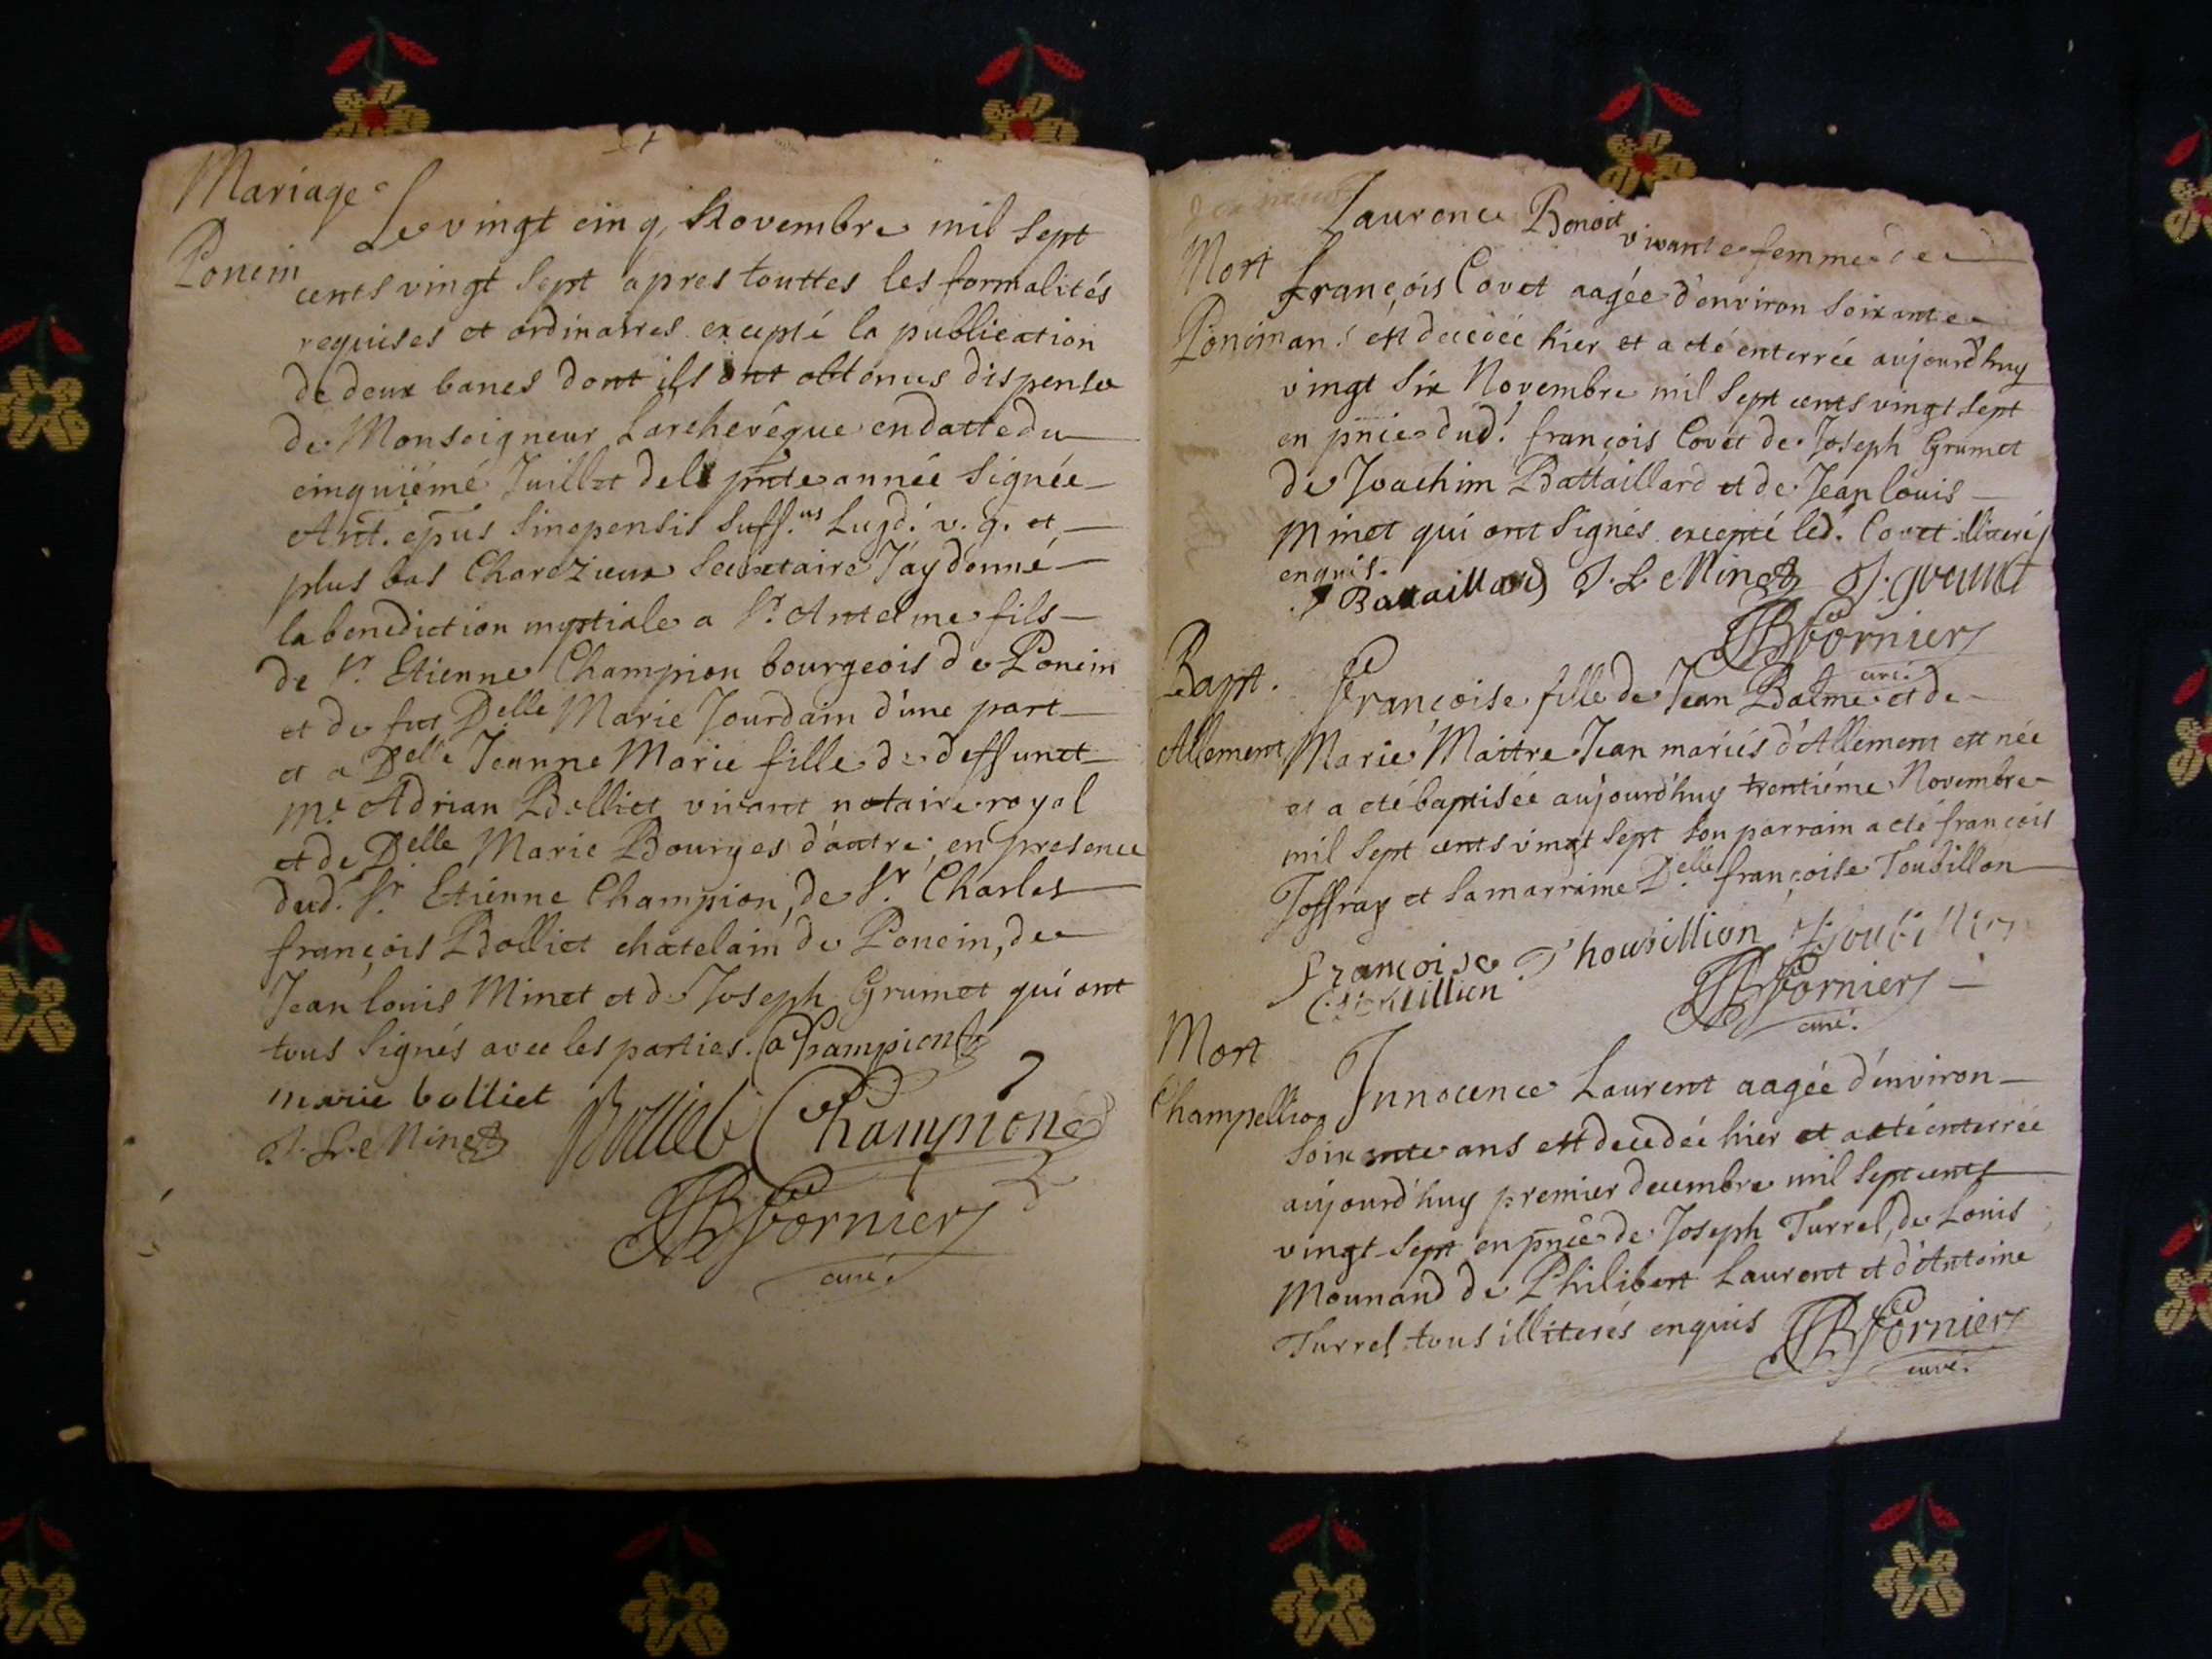 Mariage
Poncin
Le vingt cinq Novembre mil sept
cents vingt sept apres touttes les formalités
requises et ordinaires excepté la publication
de deux bancs dont ils ont obtenus dispense
de Monseigneur Larchevêque en datte du
cinquiéme Juillet de la pnte année signée
Ant. epus sinopensis suff.us Lugd. v. g. et
plus bas Charezieux secretaire J'ay donné
la benediction nuptiale a Sr. Antelme fils
de Sr. Etienne Champion bourgeois de Poncin
et de fut Delle Marie Jourdain d'une part
et a Delle Jeanne Marie fille de deffunct
Me. Adrian Bolliet vivant notaire royal
et de Delle Marie Bourges d'autre; en presence
dud. Sr. Etienne Champion, de Sr. Charles
françois Bolliet chatelain de Poncin, de
Jean louis Minet et de Joseph Grumet qui ont
tous signés avec les parties. a Champion
marie bolliet Bolliet Champion
J. L. Minet
JB fornier
curé.
Mort
Poncin
Laurence Benoit vivante femme de
françois Covet aagée d'environ soixante
ans est decedée hier et a eté enterrée aujourd'huy
vingt six Novembre mil sept cents vingt sept
en pnce dud. françois Covet de Joseph Grumet
de Joachim Battaillard et de Jean louis
Minet qui ont signés excepté led. Covet illiteré
enquis.
J Battaillard J. L. Minet J. grumet
JB fornier
curé.
Bapt.
Allement
Françoise fille de Jean Balme et de
Marie Maitre Jean mariés d'Allement est née
et a eté baptisée aujourd'huy trentiéme Novembre
mil sept cents vingt sept son parrain a eté françois
Joffray et sa marraine Delle françoise Toubillon
françoise Thoubillion
JB fornier
curé.
Mort
Champellion
Innocence Laurent aagée d'environ
soixante ans est decedée hier et a eté enterrée
aujourd'huy premier decembre mil sept cents
vingt sept en pnce de Joseph Turrel, de Louis
Mounand de Philibert Laurent et d'Antoine
Turrel tous illiterés enquis JB fornier
curé.